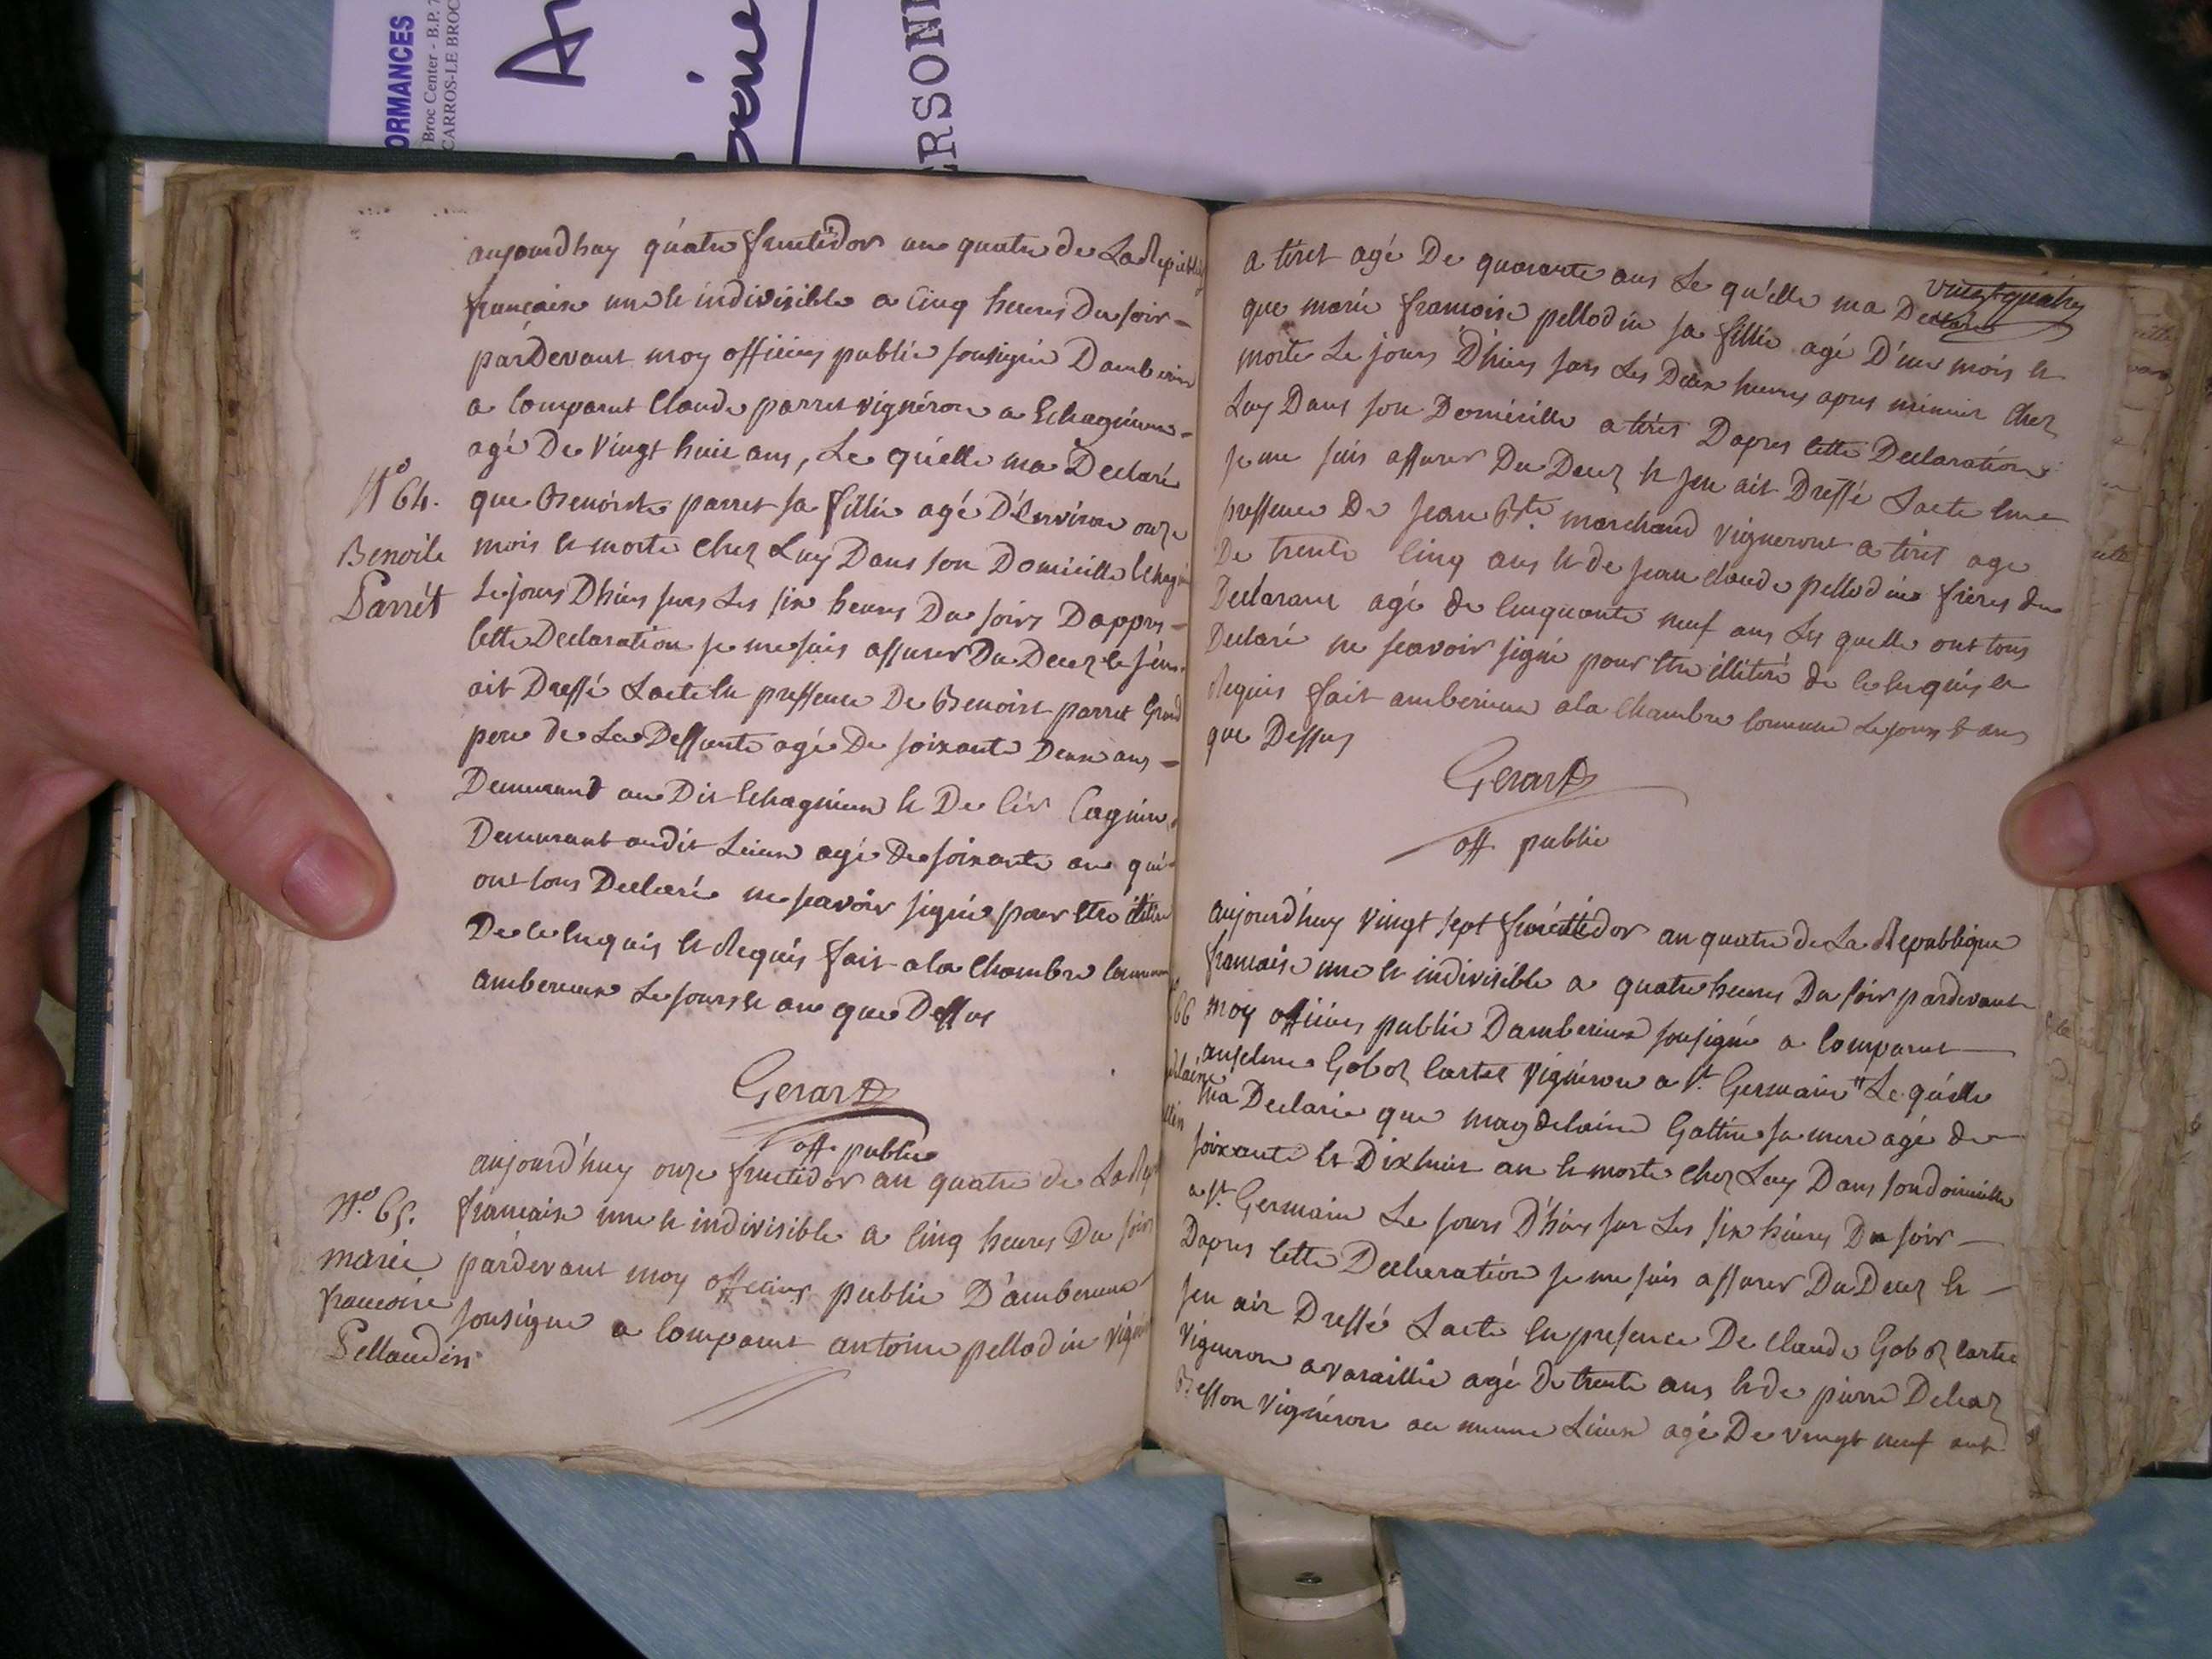 ORMANCES
Broc Center - B.P. 7
CARROS-LE BROC
ERSONN
aujourdhuy quatre fructidor an quatre de La Republi
francaise une et indivisible a cinq heures Du soir
pardevant moy officier public sousigné Damberieu
a comparut Claude parret vignéron a Echagnieux
agé De vingt huit ans, Le quelle ma Declaré
N° 64.
que Benoiste parret sa fillie agé D'Environ onze
Benoite
mois et morte chez Luy Dans son Domicille Echagni
Parrét
Le jours Dhier sur Les six heures Du soirs Dappres
cette Declaration je me suis assurer Du Decez et j'en
ait Dressé L'acte En pressence De Benoist parret Grand
pere de La Deffunte agé De soixante Deux ans
Demeurand au Dit Echagnieux et De
Demeurant audit Lieux agé de soixante an qui
ont tous Declaré ne scavoir signé pour Etre
De ce Enquis et Requis fait a la Chambre Commune
amberieux Le jours et an que Dessus
Gerard
off. public
aujourd'huy onze fructidor an quatre de La Rep
N° 65.
francaise une et indivisible a cinq heures Du soir
marie
pardevant moy officier public D'amberieux
francoise
sousigne a comparut antoine pellodin vigne
Pellaudin
a tiret agé De quarante ans Le qu'elle ma Declaré
vingt quatre
que marie francoise pellodin sa fillie agé D'un mois et
morte Le jours D'hiers sur Les Deux heures apres minuit Chez
Luy Dans son Domicille a tirét Dapres cette Declaration
je me suis assurer Du Decez et jen ait Dressé L'acte En
pressence De jean Bte marchand vigneront a tiret age
De trente cinq ans et de jean claude pellodin freres du
Declarant agé de cinquante neuf ans Les quelle ont tous
Declaré ne scavoir signé pour Etre illitéré de ce Enquis et
Requis fait amberieux a la Chambre Commune Le jours et ans
que Dessus
Gerard
off. public
aujourd'huy vingt sept fructidor an quatre de La Republique
francaise une et indivisible a quatre heures Du soir pardevant
66
moy officier public Damberieux sousigné a comparut
anselme Goboz Cartet vignéron a St Germain Le quelle
ma Declarée que magdelaine Gottin sa mere agé de
soixante et Dix huit an et morte chez Luy Dans son domicille
a St Germain Le jours D'hier sur Les six héures Du soir
Dapres cette Declaration je me suis assurer Du Decez et
jen ait Dressé L'acte En presence De claude Goboz Cartet
vigneron a varaillie agé De trente ans et de pierre Debeaz
Besson vignéron au meme Lieux agé De vingt neuf ant